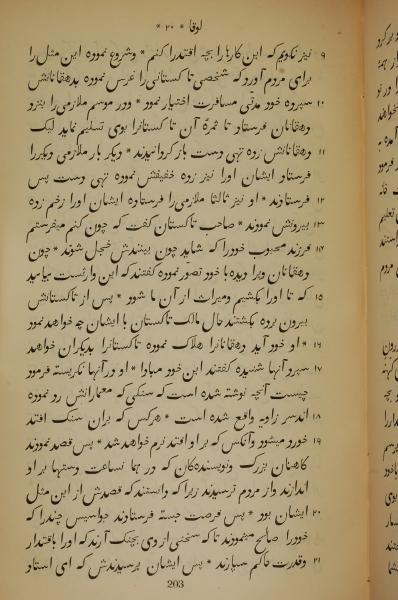 لوقا * ۲۰ *
۹ نیز نکویم که این کارها را بچه اقتدار کنم * وشروع نموده این مثل را
برای مردم آورد که شخصی تاکستانی را غرس نموده بدهقانانش
۱۰ سپرده خود مدتی مسافرت اختیار نمود * ودر موسم ملازمی را بنزد
دهقانان فرستاد تا ثمرهٔ آن تاکستانرا بوی تسلیم نمایند لیک
۱۱ دهقانانش زده تهی دست باز کردانیدند * دیکر بار ملازمی دیکررا
فرستاد ایشان اورا نیز زده خفیفش نموده تهی دست پس
۱۲ فرستادند * او نیز ثالثا ملازمی را فرستاده ایشان اورا زخم زده
۱۳ بیرونش نمودند * صاحب تاکستان کفت که چون کنم میفرستم
۱۴ فرزند محبوب خودرا که شاید چون بینندش خجل شوند * چون
دهقانان ویرا دیده با خود تصور نموده کفتند که این وارثست بیایید
۱۵ که تا اورا بکشیم ومیراث از آن ما شود * پس از تاکستانش
بیرون برده بکشتند حال مالک تاکستان با ایشان چه خواهد نمود
۱۶ * او خود آید دهقانانرا هلاک نموده تاکستانرا بدیکران خواهد
۱۷ سپرد آنها شنیده کفتند این خود مبادا * او در آنها نکریسته فرمود
چیست آنچه نوشته شده است که سنکی که معمارانش رد نموده
۱۸ اند سر زاویه واقع شده است * هرکس که بران سنک افتد
۱۹ خورد میشود وآنکس که بر او افتد نرم خواهد شد * پس قصد نمودند
کاهنان بزرک ونویسنده‌کان که در همان ساعت دستها بر او
اندازند واز مردم ترسیدند زیرا که دانستند که قصدش از این مثل
۲۰ ایشان بود * پس فرصت جسته فرستادند جواسیس چندرا که
خودرا صالح مینمودند تا که سخنی از وی بچنک آرند که اورا باقتدار
۲۱ وقدرت حاکم سپارند * پس ایشان پرسیدندش که ای استاد
203